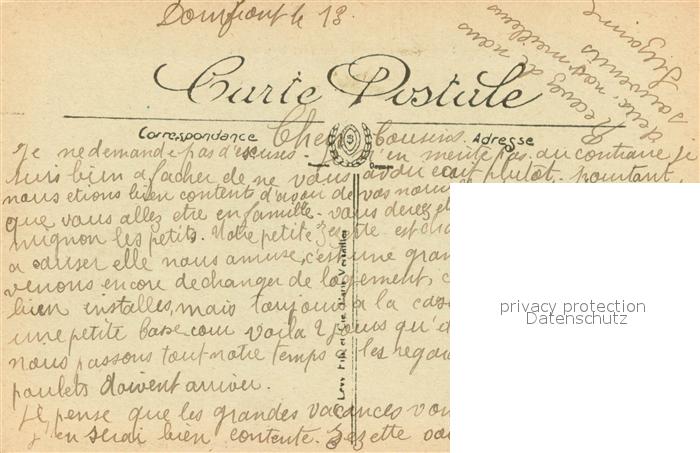 Domfront le 13.
Recevez de nous
deux nos meilleurs
souvenirs
Suzanne
Carte Postale
Correspondance
Adresse
Chers Cousins.
Je ne demande pas d'excuses. J' en merite pas. au contraire je
suis bien a facher de ne vous avoir ecrit plutot. pourtant
nous etions bien contents d'avoir de vos nouv
que vous alles etre en famille. vous devez et
mignon les petits. Notre petite Zezette est
a causer elle nous amuse, c'est une gran
venons encore de changer de logement, c
bien installes, mais toujours a la cas
une petite basse cour voila 2 jours qu'
nous passons tout notre temps a les regar
poulets doivent arriver.
Je pense que les grandes vacances von
j'en serai bien contente. Zezette
privacy protection
Datenschutz